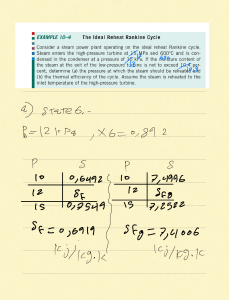 EXAMPLE 10–4 The Ideal Reheat Rankine Cycle
Consider a steam power plant operating on the ideal reheat Rankine cycle.
Steam enters the high-pressure turbine at MPa and 600°C and is con-
densed in the condenser at a pressure of kPa. If the moisture content of
the steam at the exit of the low-pressure turbine is not to exceed 10.4 per-
cent, determine (a) the pressure at which the steam should be reheated and
(b) the thermal efficiency of the cycle. Assume the steam is reheated to the
inlet temperature of the high-pressure turbine.
a) STATE 6.-
P=12 kPa, X6=0,892
P S P S
10 0,6492 10 7,4996
12 Sf 12 Sfg
15 0,7549 15 7,2522
Sf=0,6919 Sfg=7,41006
kJ/kg.k kJ/kg.k